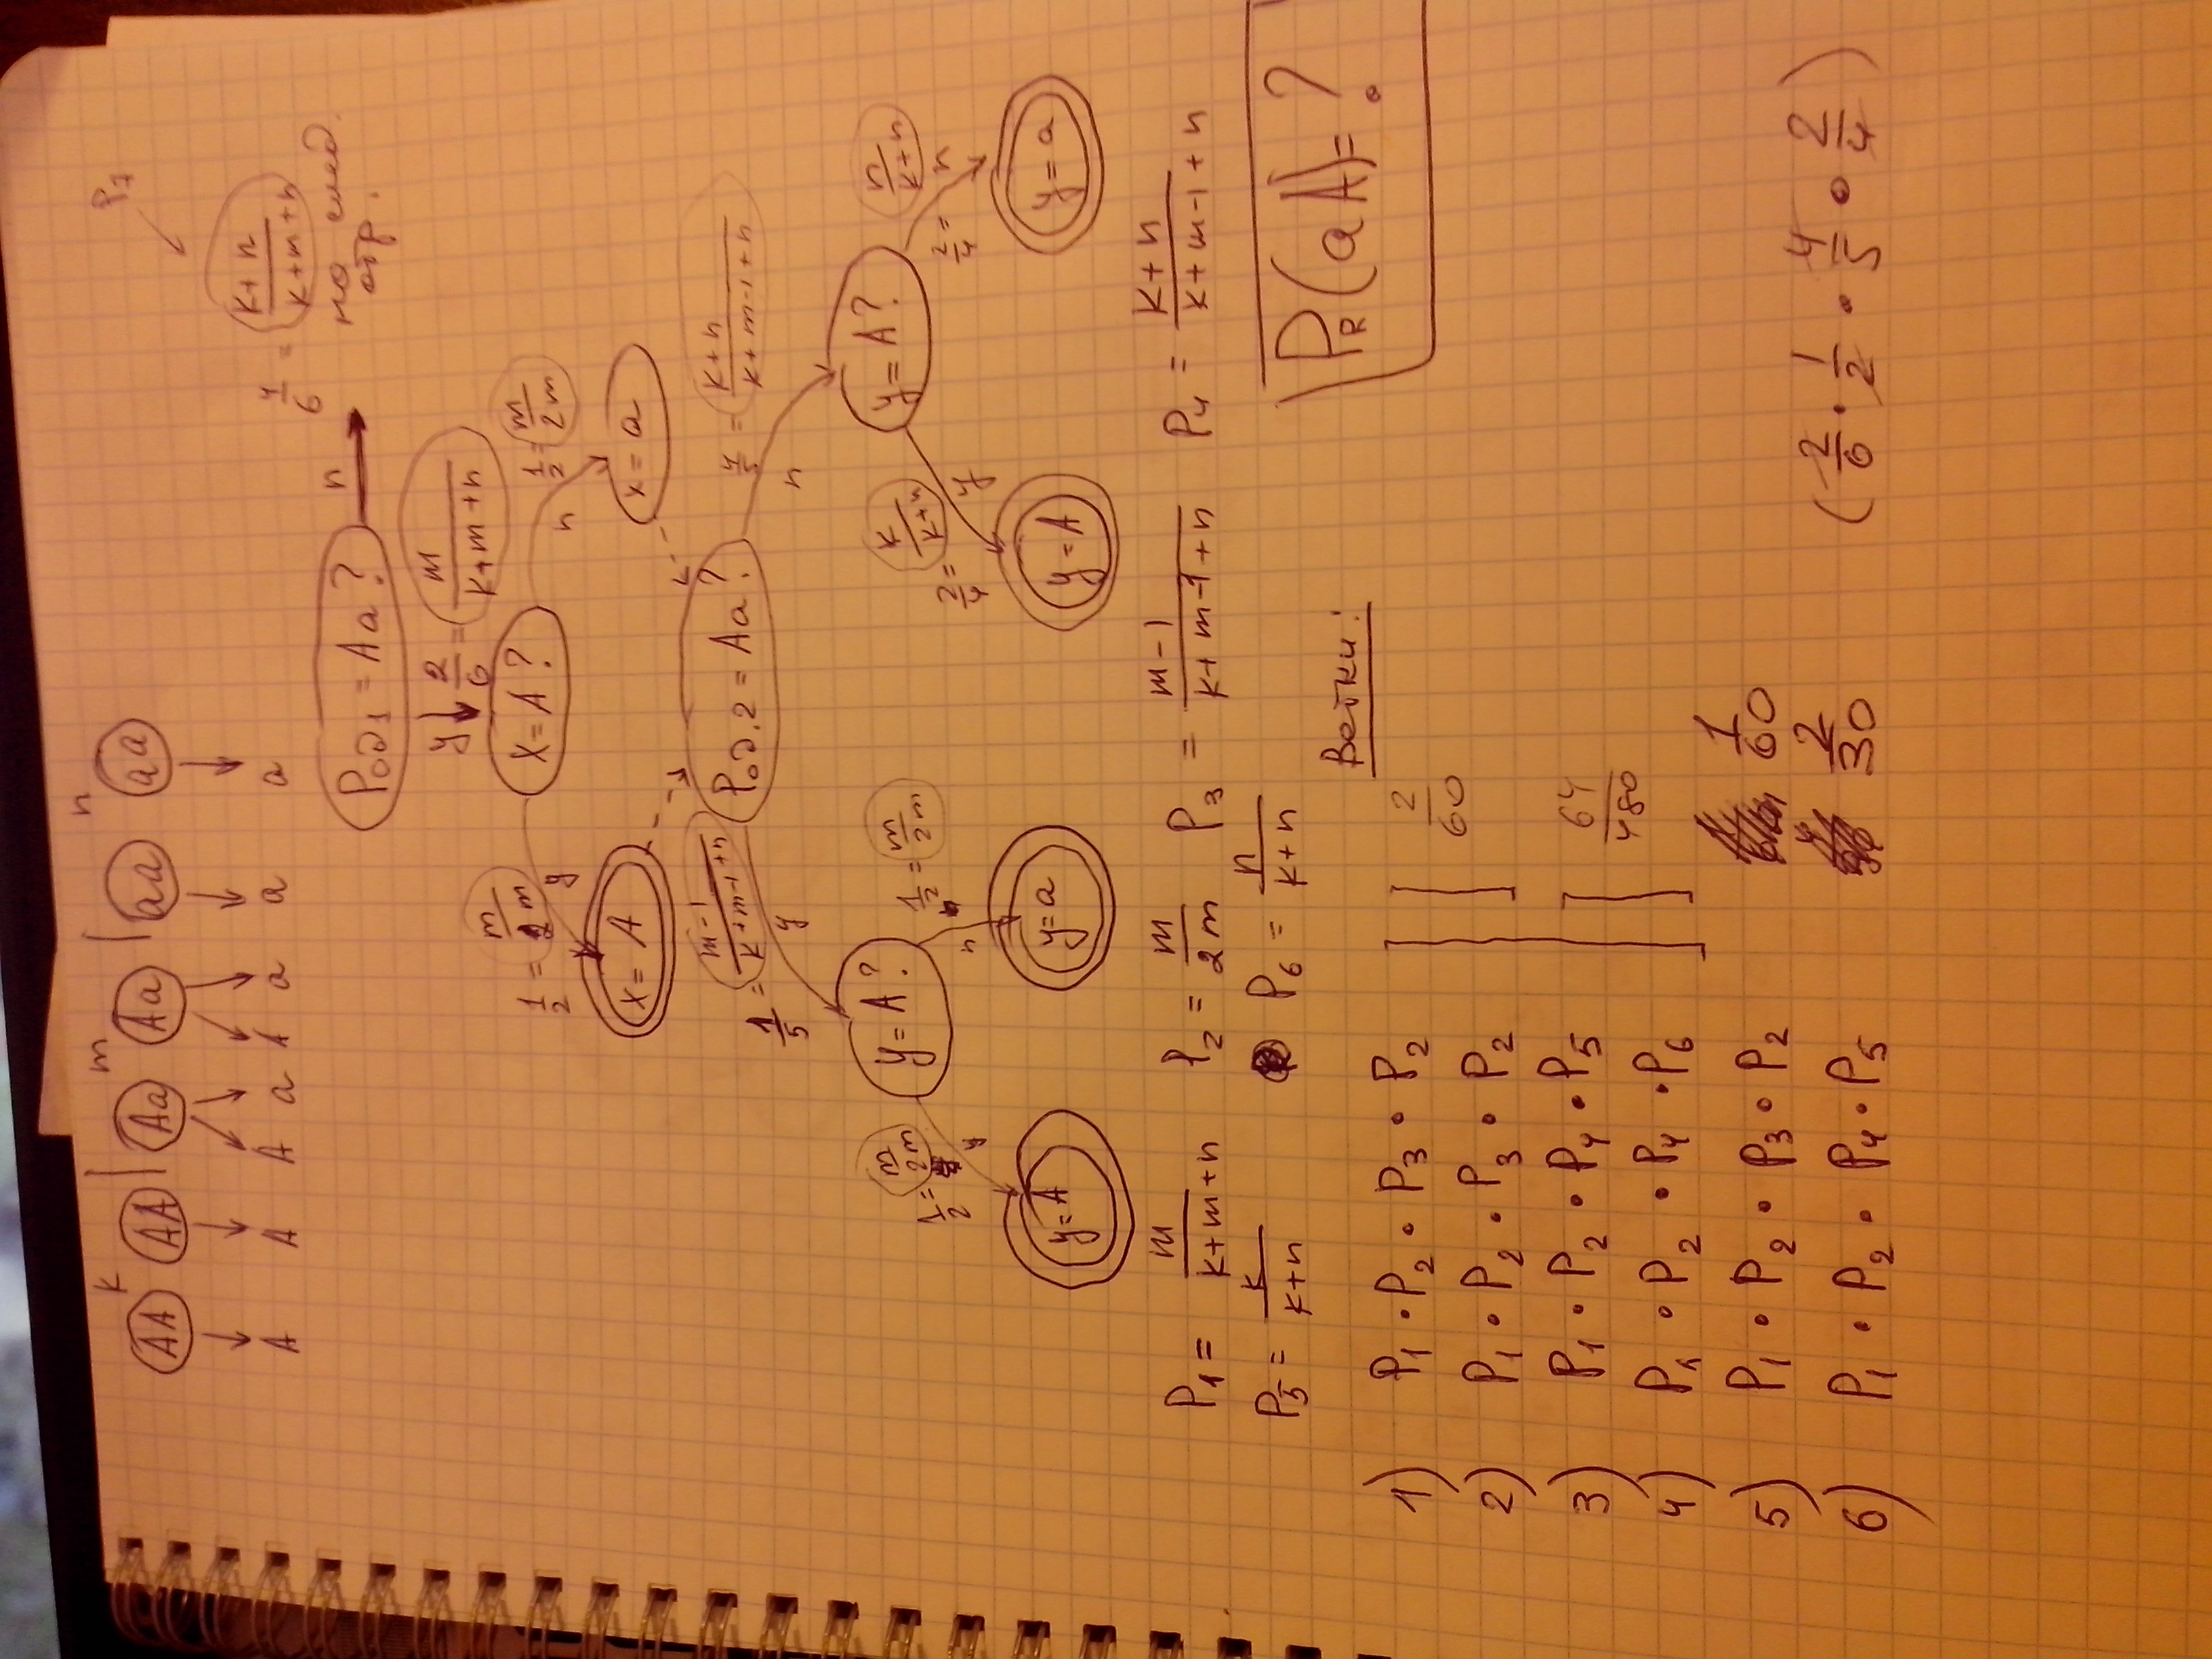 k m n
AA AA | Aa Aa | aa aa
A A A a A a a a
P₇
4/6 = (k+n)/(k+m+n)
на след.
отр.
Род₁ = Aa? n
y 2/6 = m/(k+m+n)
1/2 = m/2m y X=A? n 1/2 = m/2m
x = A x = a
1/5 = (m-1)/(k+m-1+n) y Род.2 = Aa? n 4/5 = (k+n)/(k+m-1+n)
1/2 = m/2m y y=A? n 1/2 = m/2m 2/4 = k/(k+n) y y=A? n 2/4 = n/(k+n)
y=A y=a y=A y=a
P₁ = m/(k+m+n) P₂ = m/2m P₃ = (m-1)/(k+m-1+n) P₄ = (k+n)/(k+m-1+n)
P₅ = k/(k+n) P₆ = n/(k+n)
PR(aA)=?
Ветки:
1) P₁ · P₂ · P₃ · P₂
2) P₁ · P₂ · P₃ · P₂
2/60
3) P₁ · P₂ · P₄ · P₅
4) P₁ · P₂ · P₄ · P₆
64/480
5) P₁ · P₂ · P₃ · P₂ 1/60
6) P₁ · P₂ · P₄ · P₅ 2/30 (2/6 · 1/2 · 4/5 · 2/4)